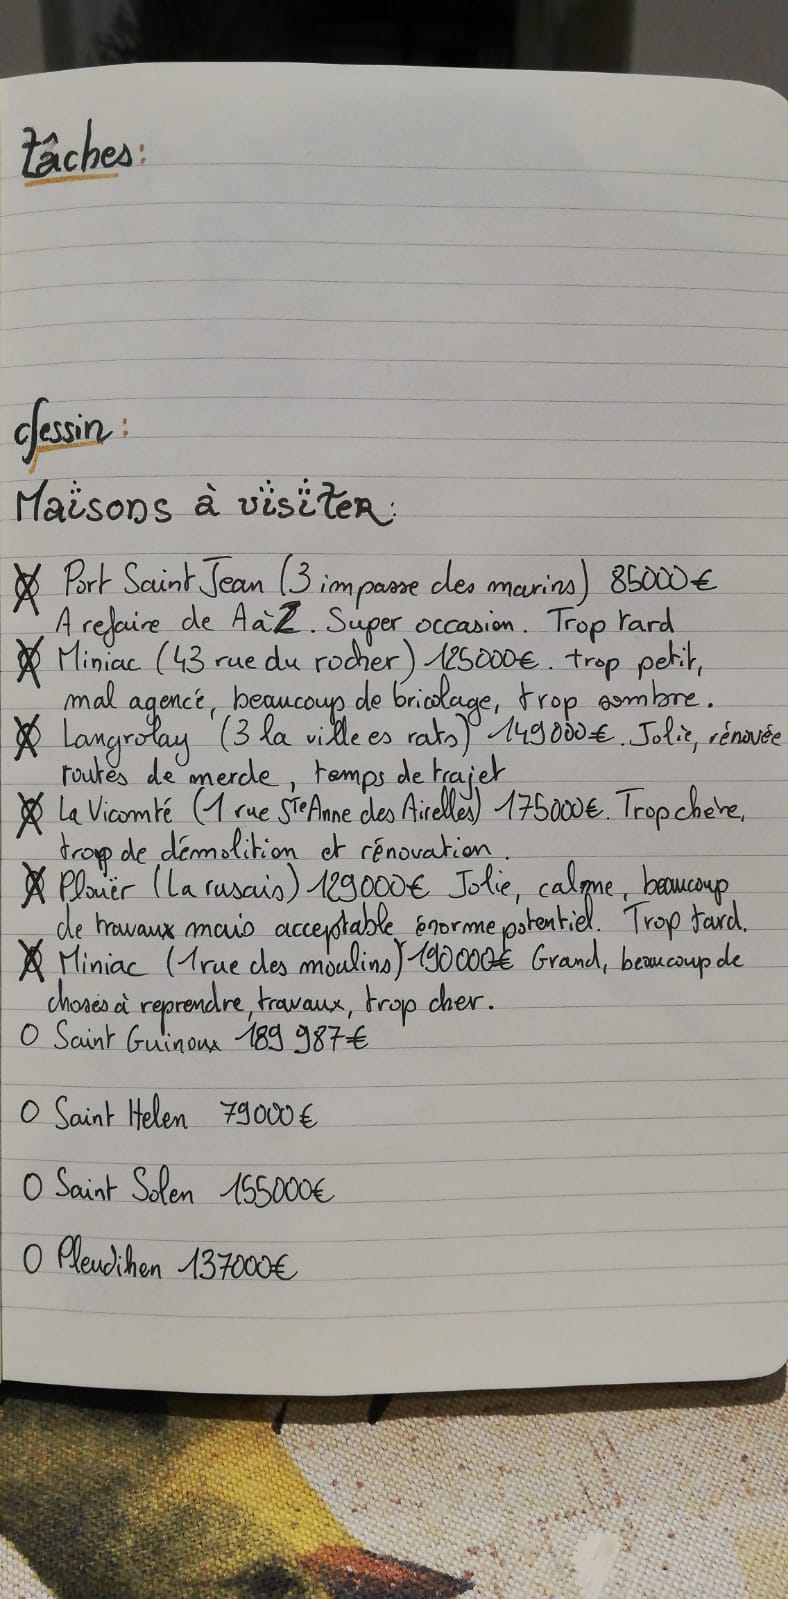 tâches:
dessin:
Maïsons à vïsïter:
Port Saint Jean (3 impasse des marins) 85000€
A refaire de A à Z. Super occasion. Trop tard
Miniac (43 rue du rocher) 125000€. trop petit,
mal agencé, beaucoup de bricolage, trop sombre.
Langrolay (3 la ville es rats) 149000€. Jolie, rénovée
routes de merde, temps de trajet
La Vicomté (1 rue Ste Anne des Airelles) 175000€. Trop chère,
trop de démolition et rénovation.
Plouër (La rusais) 129000€ Jolie, calme, beaucoup
de travaux mais acceptable énorme potentiel. Trop tard.
Miniac (1 rue des moulins) 190000€ Grand, beaucoup de
choses à reprendre, travaux, trop cher.
O Saint Guinoux 189 987€
O Saint Helen 79000€
O Saint Solen 155000€
O Pleudihen 137000€